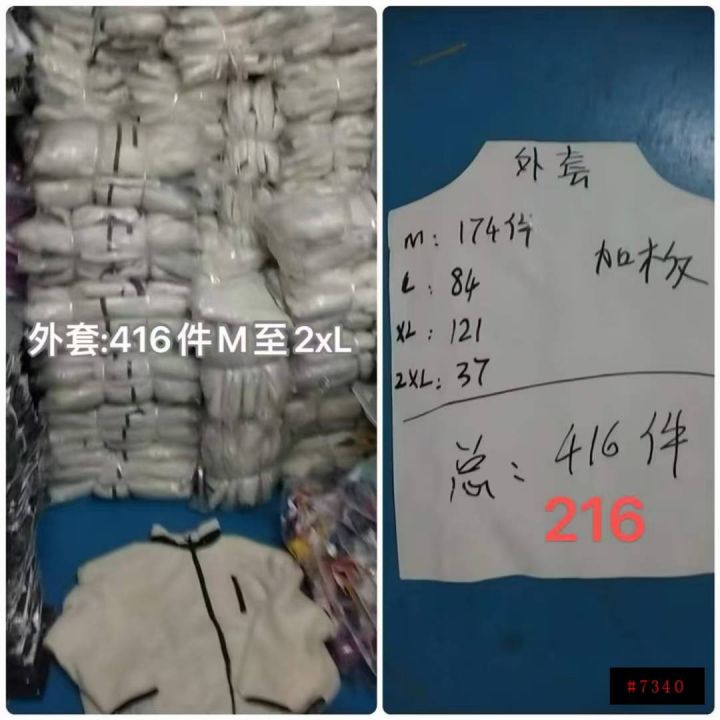 外套:416件M至2xL
外套
M: 174件
加板
L: 84
XL: 121
2XL: 37
总: 416件
216
#7340